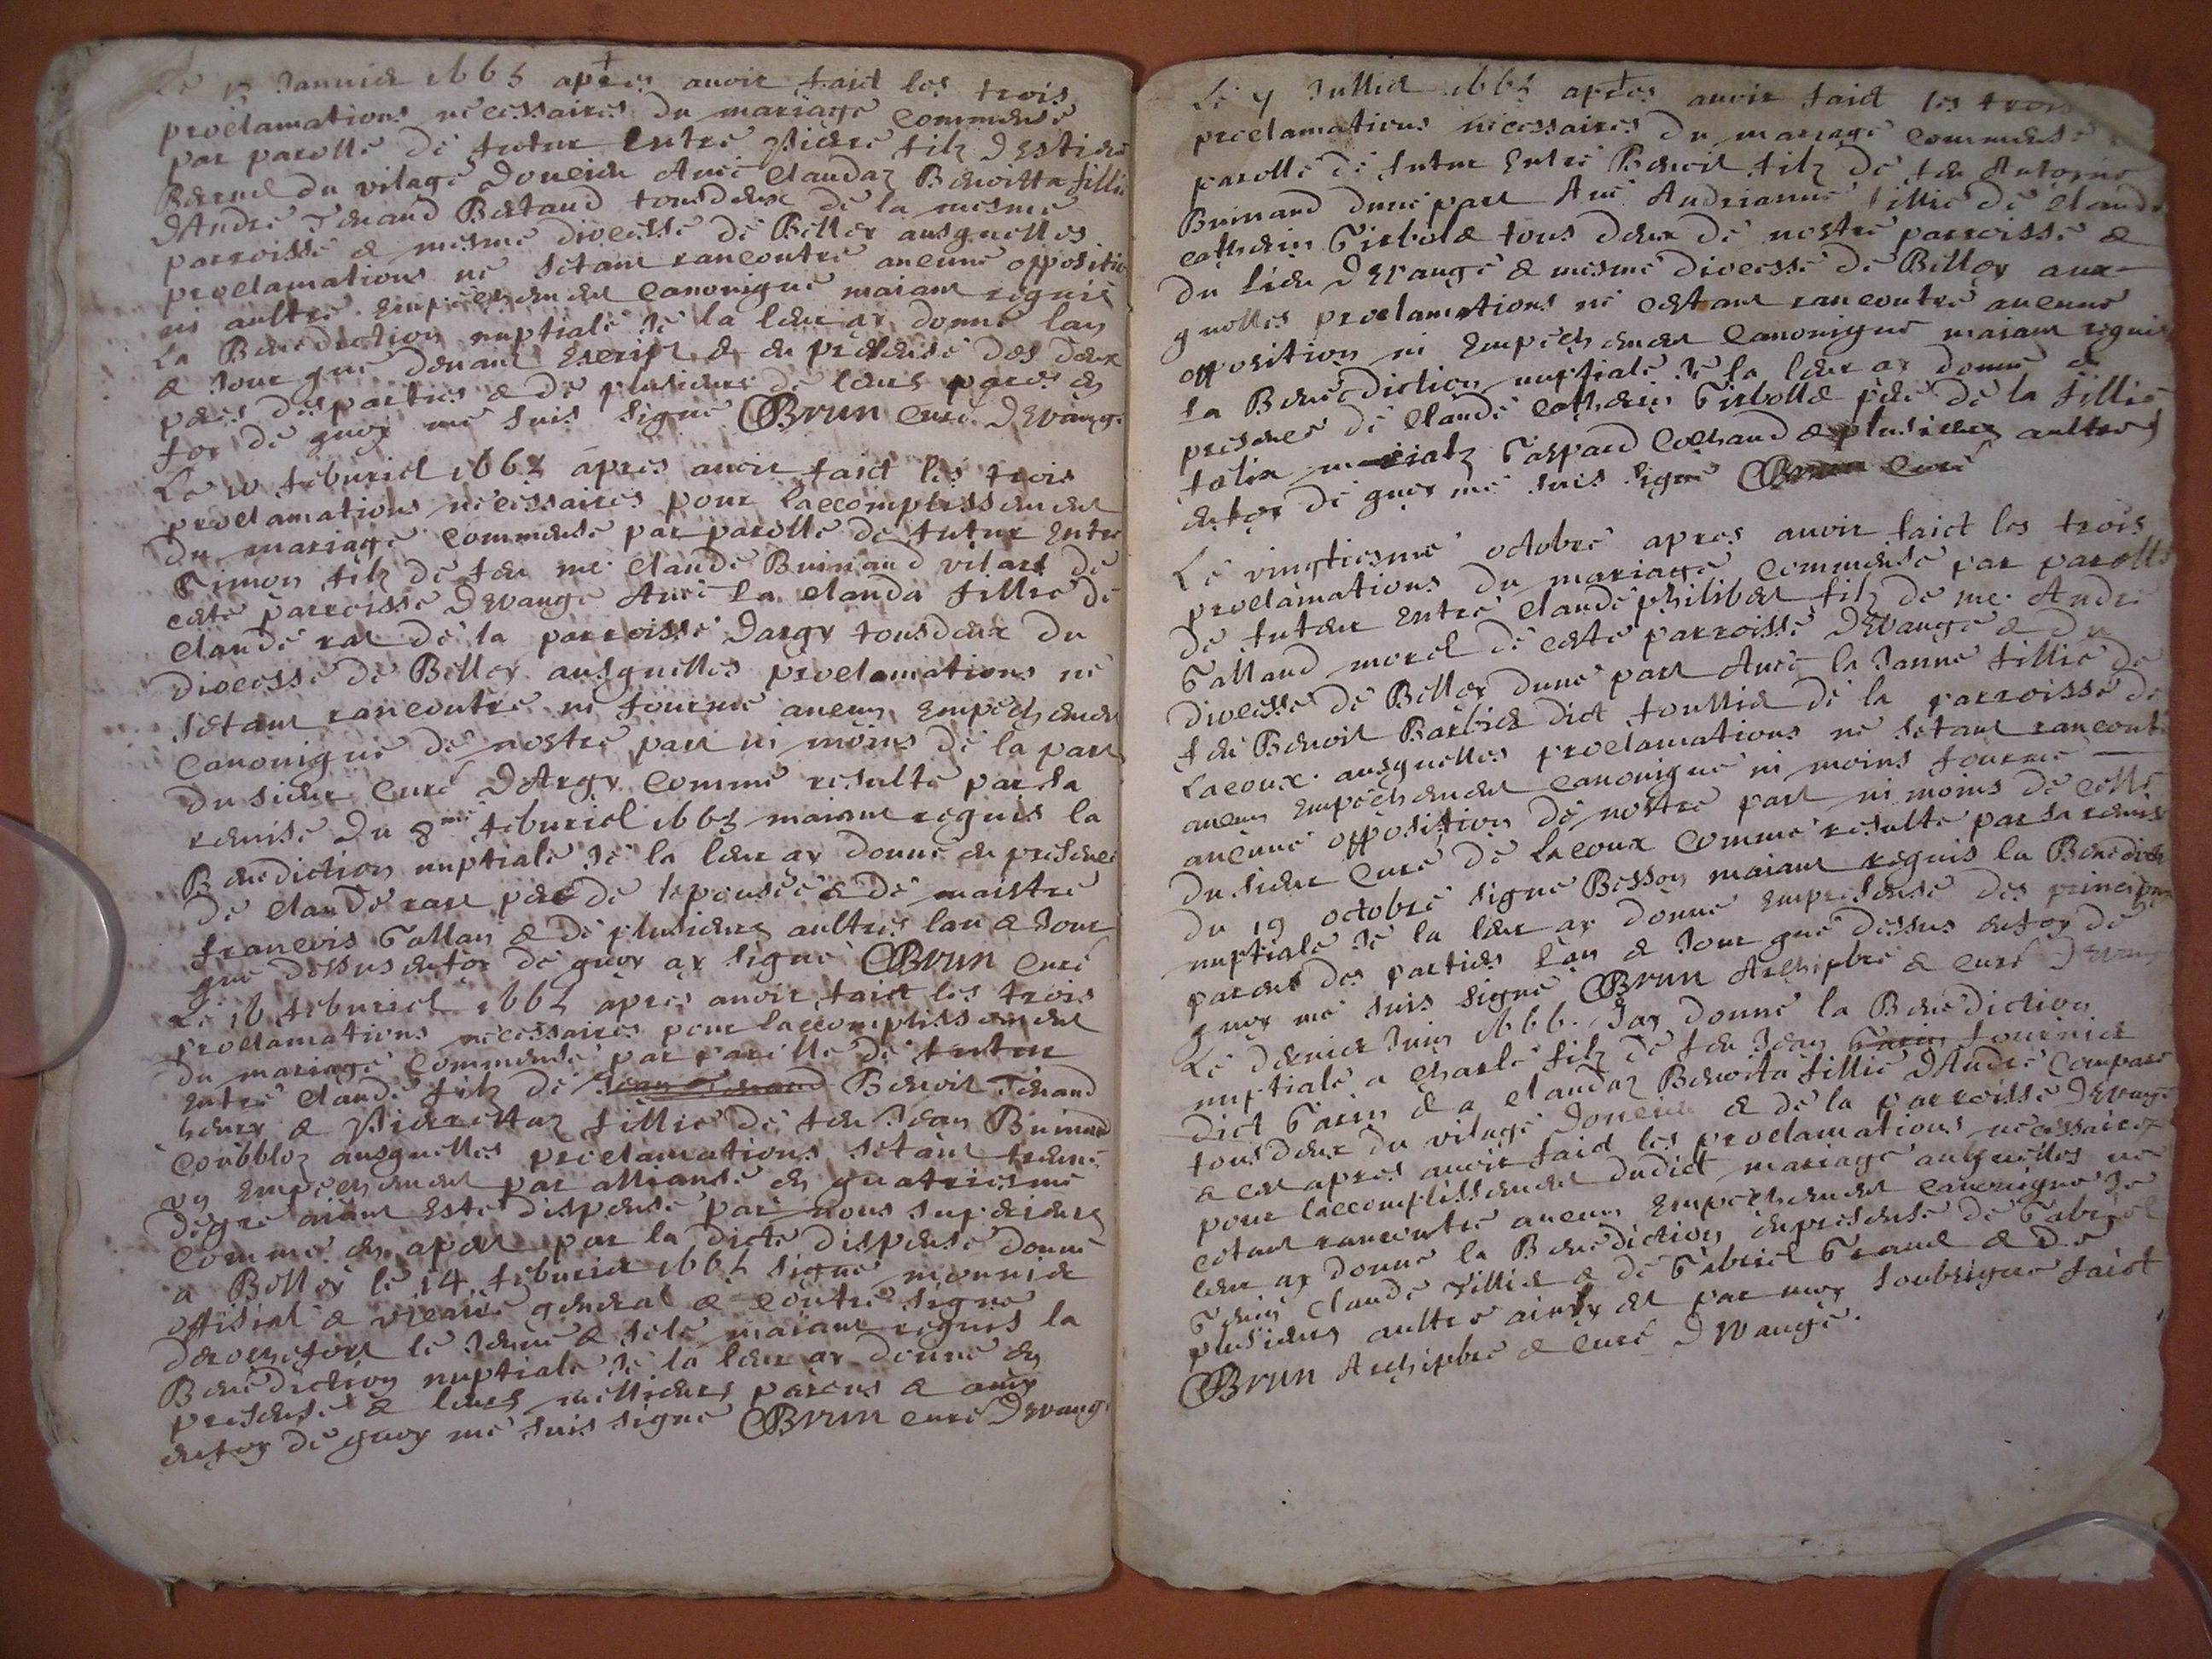 Le 13 Januier 1665 apres auoir faict les trois
proclamations necessaires du mariage commensé
par parolle de futur Entre pierre filz DEstiene
Bernel du vilage Doncieu Auec claudaz Benoitta fillie
DAndre Tenand Bertaud tousdeux de la mesme
parroisse & mesme diocesse de Belley ausquelles
proclamations ne setant rancontré aucune oppositio
ni aultre Empechement canonique maiant requis
la Benediction nuptiale Je la leur ay donné lan
& Jour que deuant Escript & en presense des deux
peres des parties & de plusieurs de leurs parens en
foy de quoy me suis signé Brun curé DEvange
Le 10 feburier 1665 apres auoir faict les trois
proclamations necessaires pour laccomplissement
du mariage commensé par parolle de futur Entre
Simon filz de feu me. claude Buinand vilard de
ceste parroisse DEvange Auec la clauda fillie de
claude rat de la parroisse Dargy tousdeux du
diocesse de Belley ausquelles proclamations ne
setant rancontré ni fourmé aucun Empechement
canonique de nostre part ni moins de la part
du sieur curé DArgy comme resulte par sa
remise du 8me feburier 1665 maiant requis la
Benediction nuptiale Je la leur ay donné en presence
de claude rat pere de lepousée & de maistre
francois Gallan & de plusieurs aultres lan & Jour
que dessus enfoy de quoy ay signé Brun curé
Le 16 feburier 1665 apres auoir faict les trois
proclamations necessaires pour laccomplissement
du mariage commensé par parolle de futur
Entre claude filz de Benoit Tenand
& pierrettaz fillie de feu Jean Buinand
ausquelles proclamations setant treuué
vn Empechement par alliansé en quatriesme
degré aiant Esté dispensé par nous superieurs
comme en apert par la dicte dispense donné
a Belley le 14 feburier 1665 signé
offisial & vicaire general & contre signé
le & selé maiant requis la
Benediction nuptiale Je la leur ay donné en
presense & leurs mellieurs parens & amis
enfoy de quoy me suis signé Brun curé DEvange
Le 7 Jullier 1665 apres auoir faict les trois
proclamations necessaires du mariage commensé
parolle de futur Entre Benoit filz de feu Antoine
Buinand dune part Auec Andrianne fillie de claude
catherin Girbold tous deux de nostre parroisse &
du lieu DEvange & mesme diocesse de Belley aux-
quelles proclamations ne cestant rancontré aucune
opposition ni Empechement canonique maiant requis
la Benediction nuptiale Je la leur ay donné en
presence de claude catherin Girbolld pere de la fillie
Gaspard cochand & plusieurs aultres
enfoy de quoy me suis signé Brun curé
Le vingtiesme octobre apres auoir faict les trois
proclamations du mariage commensé par parolle
de futeur Entre claude philibert filz de me. Andre
Galland morel de ceste parroisse DEvange & du
diocesse de Belley dune part Auec la Janne fillie de
feu Benoit Barbier dict foullier de la parroisse de
Lacoux. ausquelles proclamations ne setant rancontré
aucun Empechement canonique ni moins fourmé
aucune opposition de nostre part ni moins de celle
du sieur curé de Lacoux comme resulte par sa remise
du 19 octobre signé Besson maiant requis la Benedict
nuptiale Je la leur ay donné Empresense des principaux
parens des parties lan & Jour que dessus enfoy de
quoy me suis signé Brun Archiprbre & curé DEvange
Le dernier Juin 1666. Jay donné la Benediction
nuptiale a charle filz de feu Jean Garin fournier
dict Garin & a claudaz Benoita fillie DAndre compare
tousdeux du vilage Doncieu & de la parroisse DEvange
& cet apres auoir faict les proclamations necessaires
pour laccomplissement dudict mariage ausquelles ne
cetant rancontré aucun Empechement canonique Je
leur ay donné la Benediction enpresense de Gabriel
claude Tillier & de Gabriel Grand & de
plusieurs aultre ainsy est par moy soubsigné faict
Brun Archiprbre & curé DEvange.